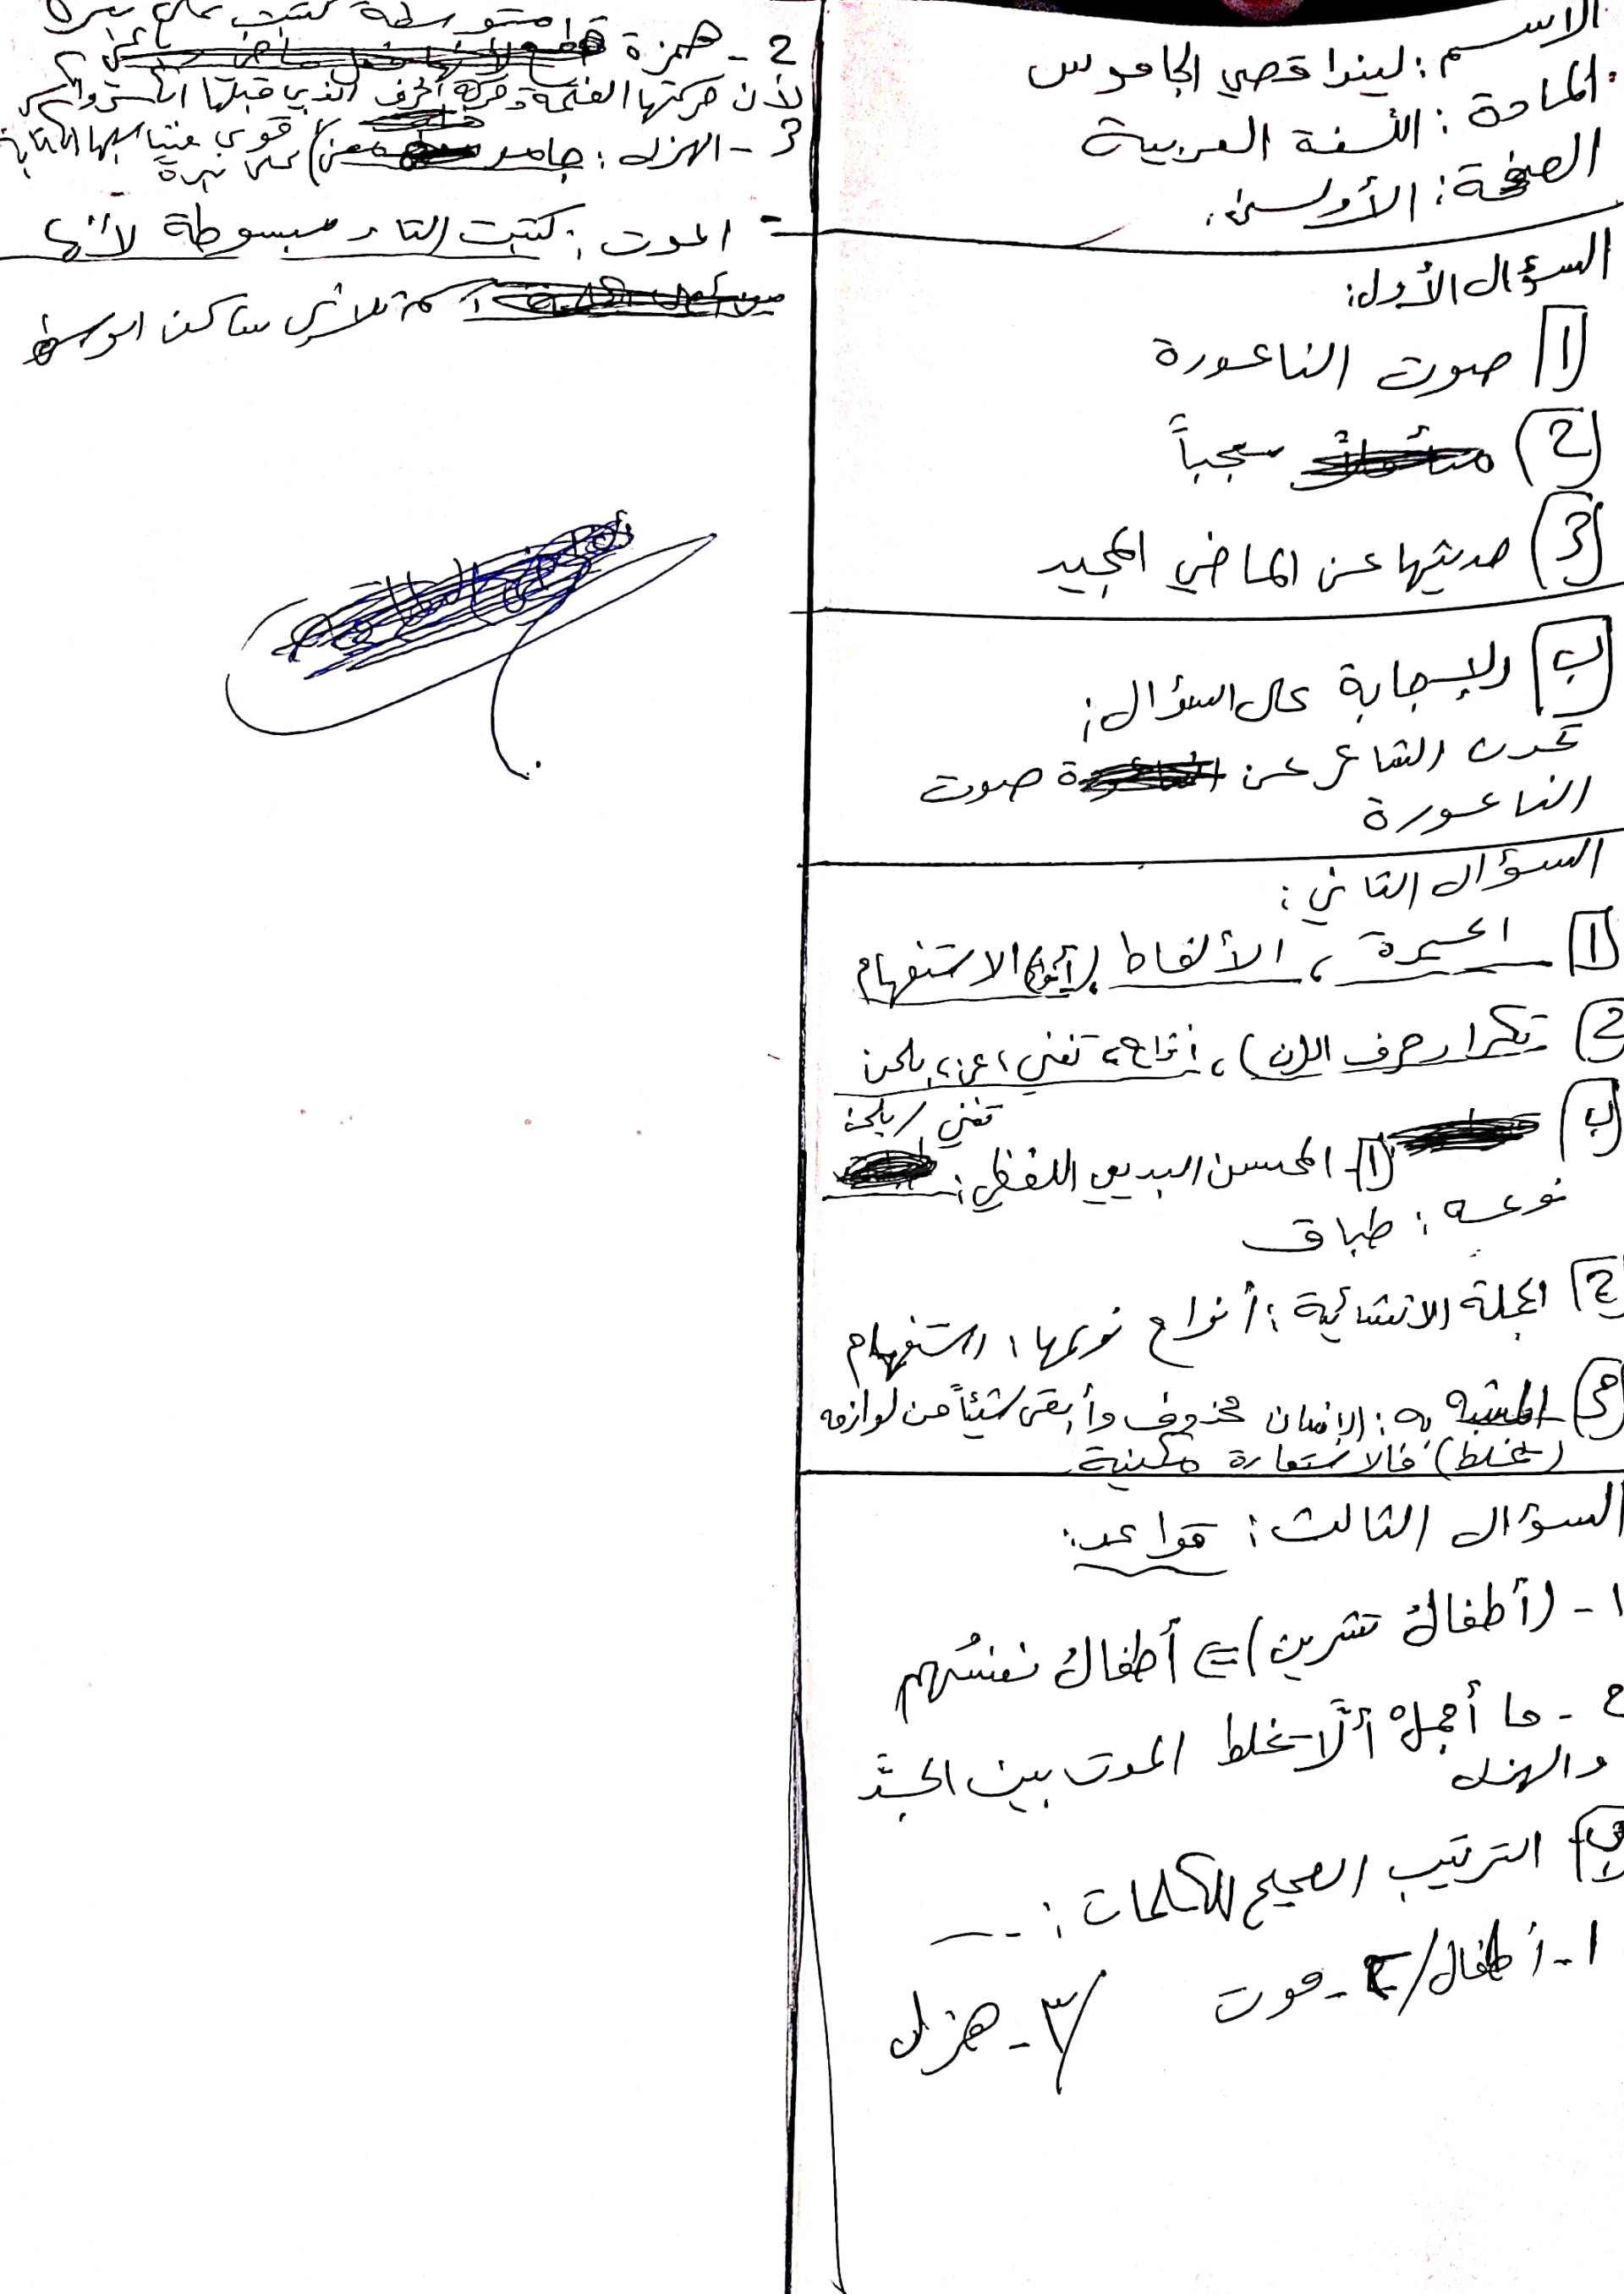 الاسم : ليندا قصي الجاموس
المادة : اللغة العربية
الصفحة : الأولى.
السؤال الأول :
1 صوت الناعورة
2 عجباً
3 حديثها عن الماضي المجيد
ب الإجابة على السؤال :
تحدث الشاعر عن صوت
الناعورة
السؤال الثاني :
1 الحيرة ، الألفاظ (أنواح) الاستفهام
2 تكرار حرف (الن) ، أنواح ، تغني ، عن ، بلحن
ب 1- المحسن البديعي اللفظي : تغني / بلحن
نوعه : طباق
2 الجملة الانشائية : أنواح نوعها : استفهام
3 المشبه به : الإنسان محذوف وأبقى شيئاً من لوازمه
(تخلط) فالاستعارة مكنية
السؤال الثالث : قواعد :
1 - (أطفالُ تشرين) => أطفالُ نفسُهم
2 - ما أجمل ألَّا تخلط الموت بين الجدِّ
والهزل
ب الترتيب الصحيح للكلمات :
1 - أطفال / 2 - موت / ٣ - هزل
2 - همزة متوسطة كتبت على نبرة
لأن حركتها الفتحة وحركة الحرف الذي قبلها الكسر والكسر
قوي فيناسبها الكتابة
على نبرة
3 - الهزل : جامد
- الموت : كتبت التاء مبسوطة لأنها
اسم ثلاثي ساكن الوسط